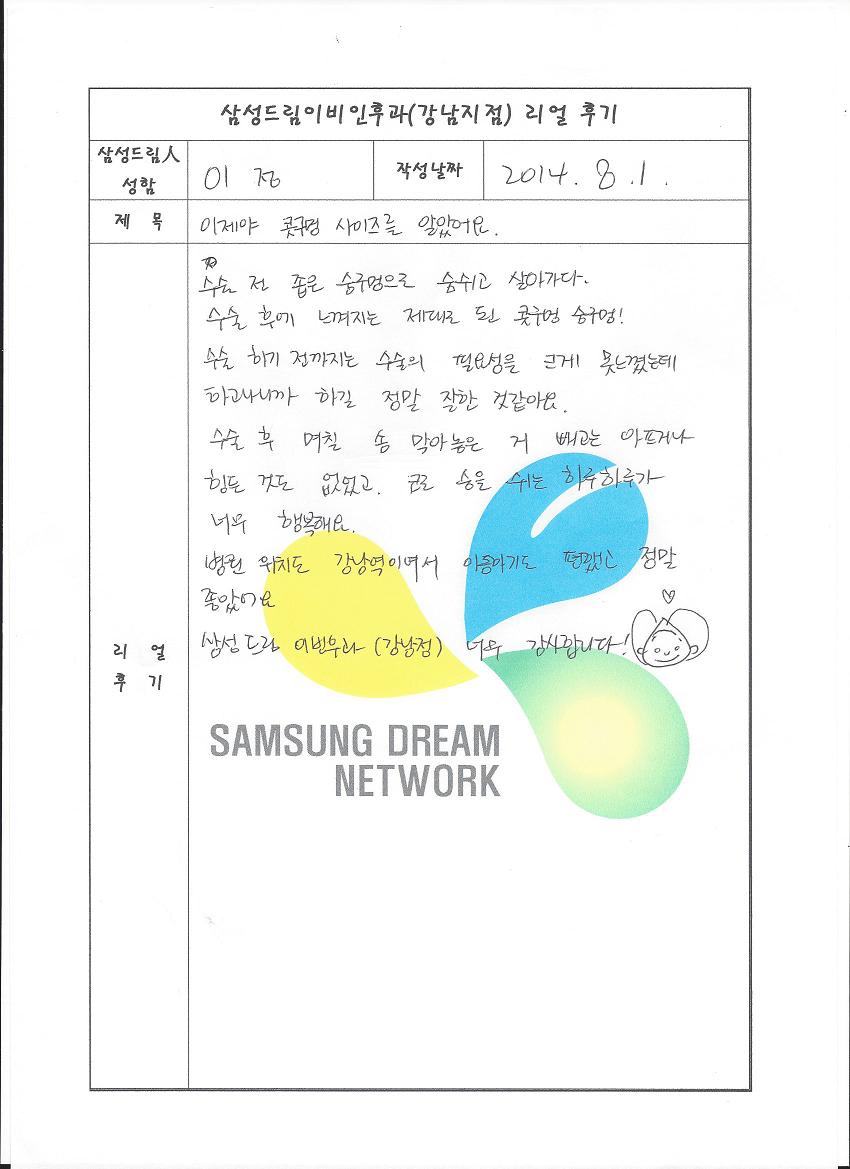 삼성드림이비인후과(강남지점) 리얼 후기
삼성드림人
성함
이 정
작성날짜
2014. 8. 1.
제 목
이제야 콧구멍 사이즈를 알았어요.
수술 전 좁은 숨구멍으로 숨쉬고 살아가다.
수술 후에 느껴지는 제대로 된 콧구멍 숨구멍!
수술 하기 전까지는 수술의 필요성을 크게 못느꼈는데
하고나니까 하길 정말 잘한 것같아요.
수술 후 며칠 솜 막아놓은 거 빼고는 아프거나
힘든 것도 없었고. 코로 숨을 쉬는 하루하루가
너무 행복해요.
병원 위치도 강남역이여서 이동하기도 편했고 정말
좋았어요
삼성드림 이빈후과 (강남점) 너무 감사합니다!
리 얼
후 기
SAMSUNG DREAM
NETWORK